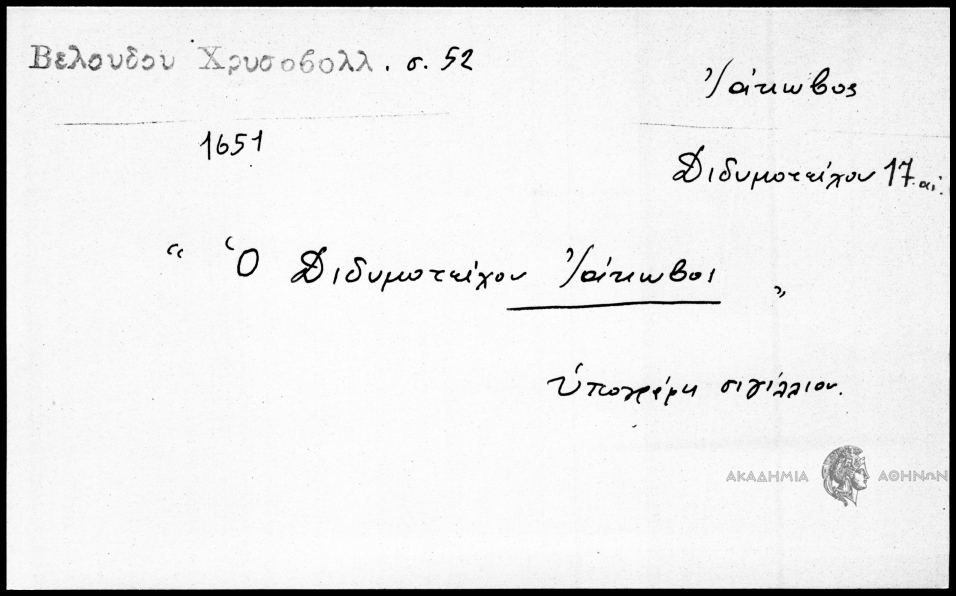 Βελούδου Χρυσοβολλ. σ. 52
Ἰάκωβος
1651
Διδυμοτείχου 17 αἰ.
“ Ὁ Διδυμοτείχου Ἰάκωβος „
ὑπογράφει σιγίλλιον.
ΑΚΑΔΗΜΙΑ ΑΘΗΝΩΝ